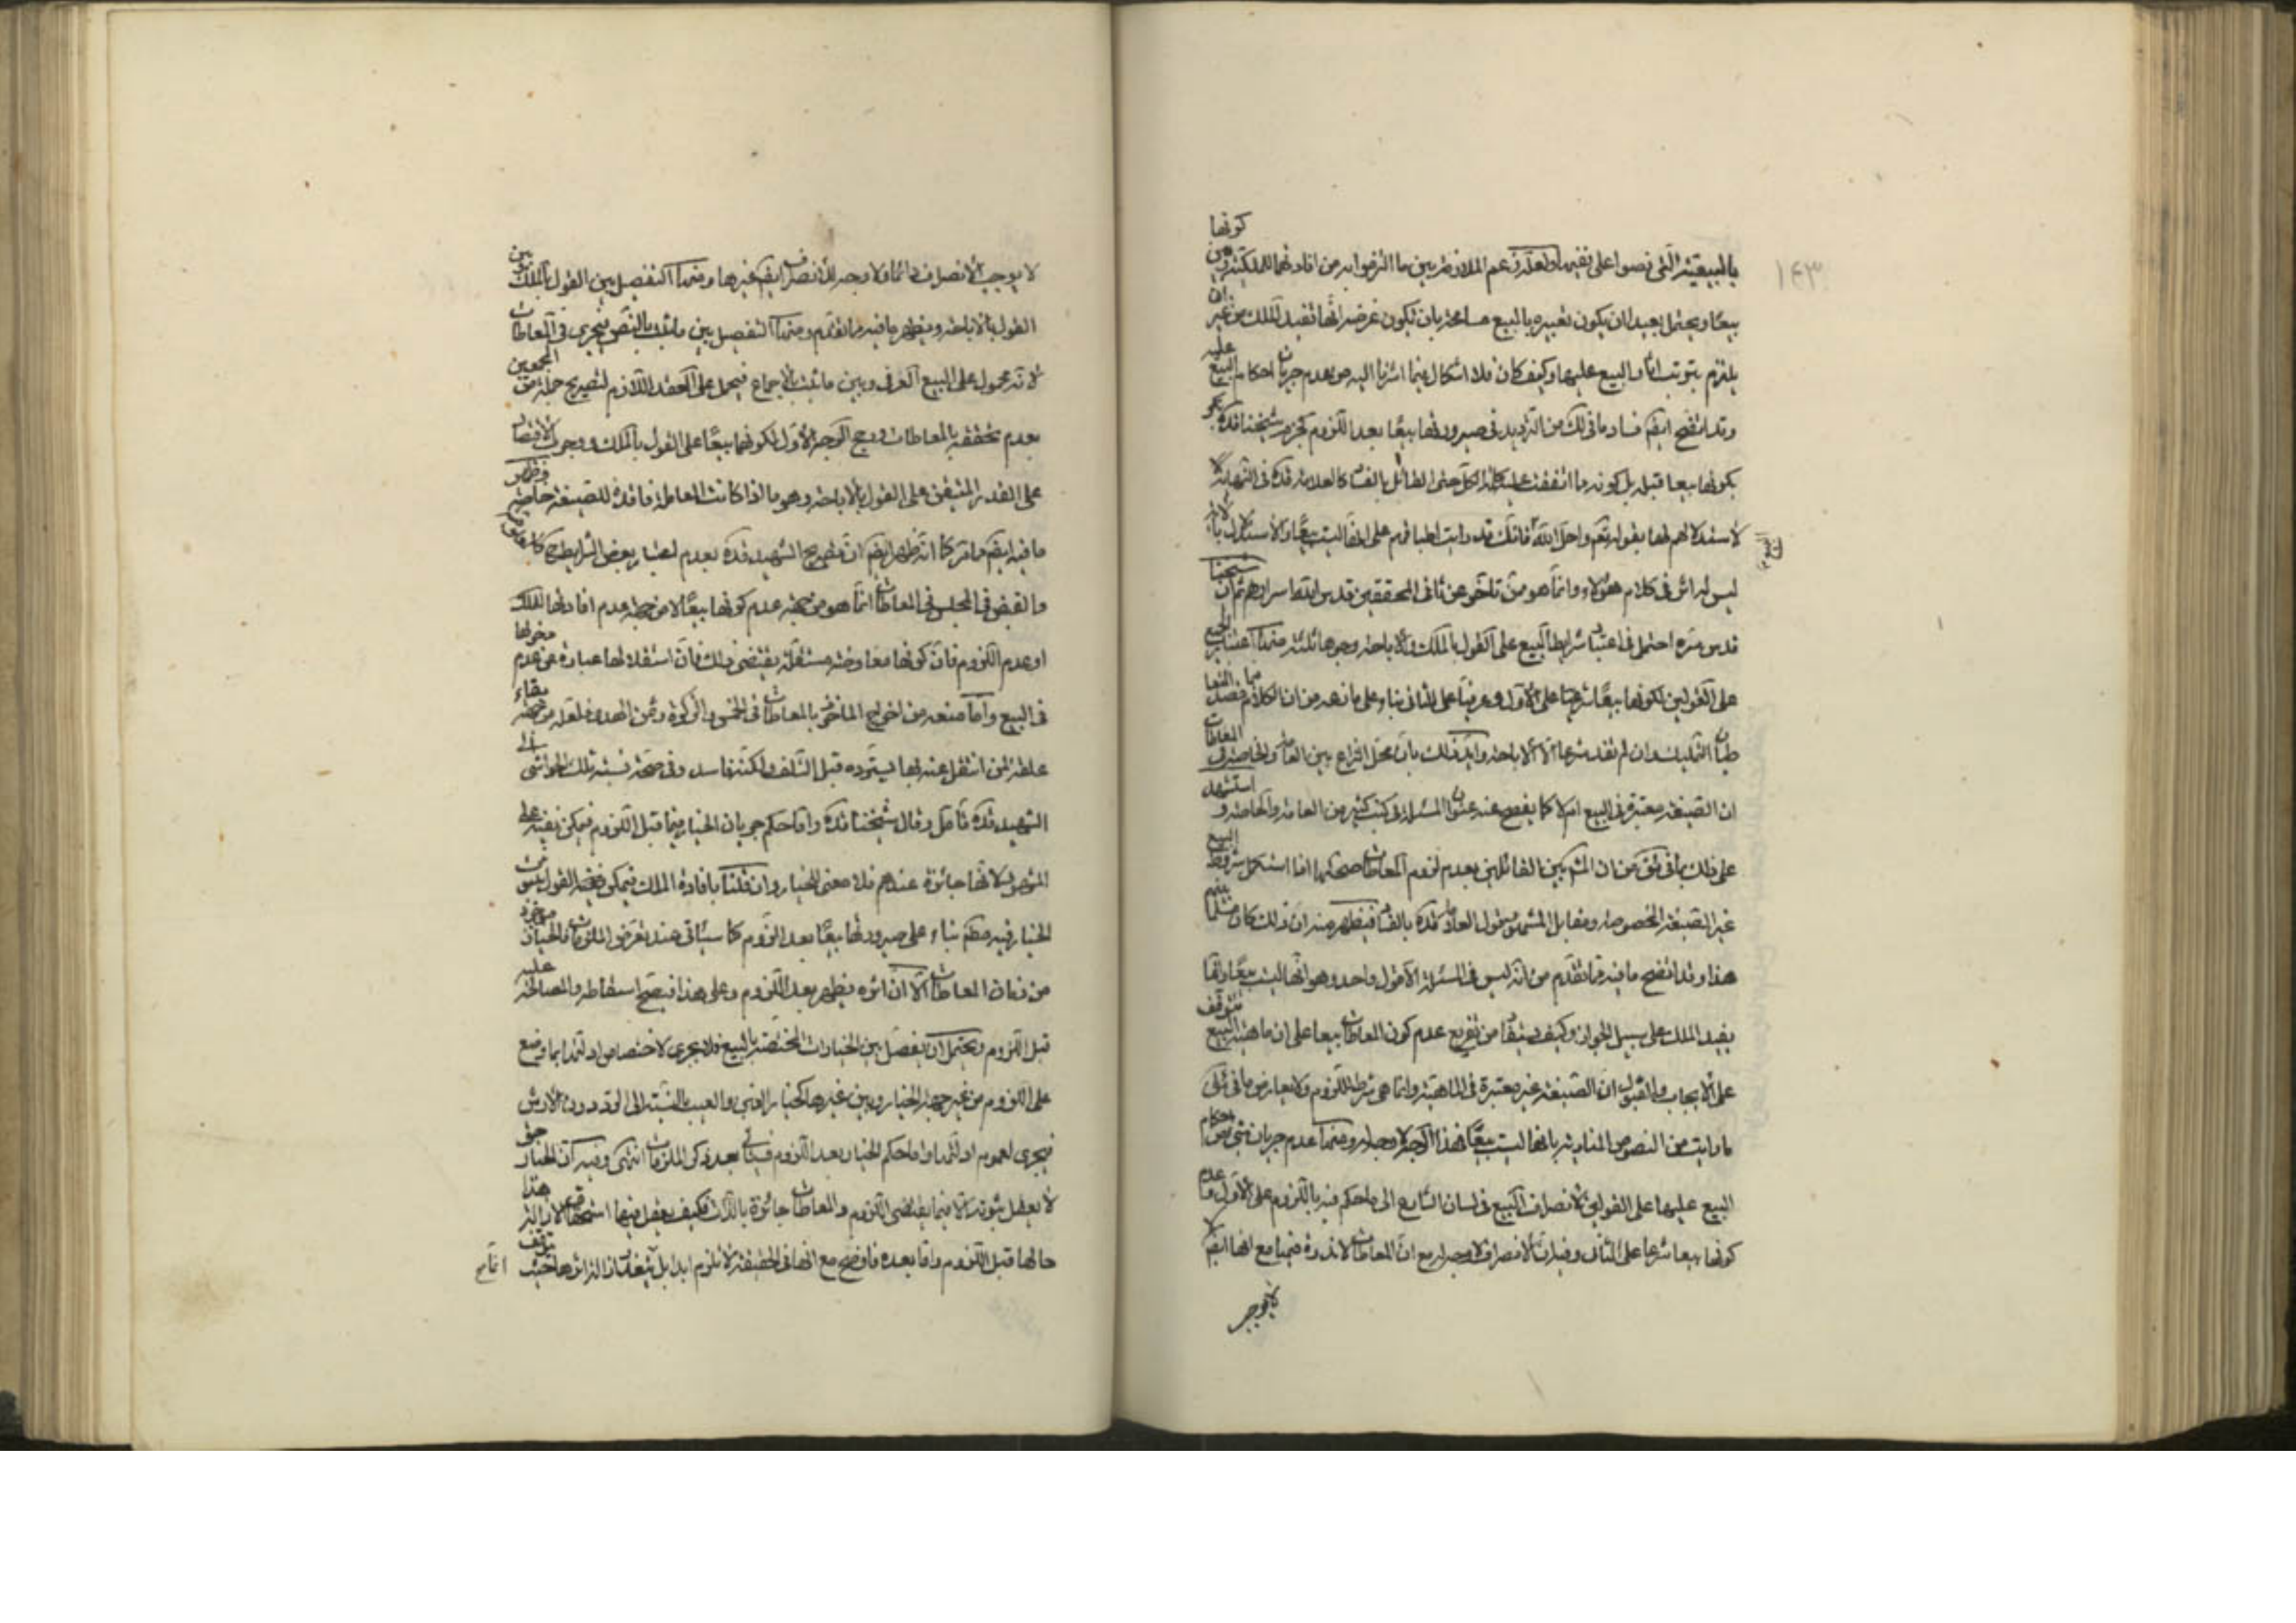 ١٤٣
بالبيعية التي نصوا على نفيها ولعله زعم الملازمة بين ما التزموا به من افادتها للملكية وبين كونها
بيعا ويحتمل بعيدا ان يكون تعبيره بالبيع مسامحة بان تكون غرضه انها تفيد الملك من غير ان
يلتزم بترتب اثار البيع عليها وكيف كان فلا اشكال فيما اشرنا اليه من عدم جريان احكام البيع عليه
وقد اتضح ايضا فساد ما في لك من الترديد في صيرورتها بيعا بعد اللزوم كجزم شيخنا قده
بكونها بيعا قبله بل كونه ما اتفقت عليه الكل حتى القائل بالفساد كالعلامة قده في النهاية
لاستدلالهم لها بقوله تعم واحل الله البيع فانك قد رايت اطباقهم على انها ليست بيعا والاستدلال بالاية
ليس له اثر في كلام هؤلاء وانما هو ممن تاخر عن ثاني المحققين قدس الله اسرارهم ثم ان شيخنا
قدس سره احتمل في اعتبار شرايط البيع على القول بالملك والاباحة وجوها ثلثة منها اعتبار الجميع
على القولين لكونها بيعا شرعيا على الاول وعرفيا على الثاني بناء على ما زعمه من ان الكلام فيما قصد المتعا
طيان التمليك وان لم تفد شرعا الا الاباحة وايد ذلك بان محل النزاع بين العامة والخاصة في المعاطات
ان الصيغة معتبرة في البيع ام لا كما يفصح عنه عنوان المسئلة في كتب كثير من العامة والخاصة و استشهد
على ذلك بما في من ان المشهور بين القائلين بعدم لزوم المعاطات صحتها اذا استكمل شروط البيع
غير الصيغة المخصوصة ومقابل المشهور قول العلامة قده بالفساد فيظهر منه ان ذلك كان مسلما بينهم
هذا وقد اتضح ما فيه مما تقدم من انه ليس في المسئلة الا قول واحد وهو انها ليست بيعا وانما
يفيد الملك على سبيل الجواز وكيف يستفاد من تفريع عدم كون المعاطات بيعا على ان ماهية البيع تتوقف
على الايجاب والقبول ان الصيغة غير معتبرة في الماهية وانما هي شرط للزوم ولا يعارض ما في لك
ما رايت من النصوص المنادية بانها ليست بيعا فهذا الوجه لا وجه له ومنها عدم جريان شيء من احكام
البيع عليها على القولين لانصراف البيع في لسان الشارع الى ما حكم فيه باللزوم على الاول و عدم
كونها بيعا شرعا على الثاني وفيه ان الانصراف لا وجه له مع ان المعاطات لا ندرة فيها مع انها ايضا لا
لا يوجب
لا يوجب الانصراف دائما ولا وجه للانصراف ايضا غيرها ومنها التفصيل بين القول بالملك وبين
القول بالاباحة ويظهر ما فيه مما تقدم ومنها التفصيل بين ما ثبت بالنص فيجري في المعاطات
لانه محمول على البيع العرفي وبين ما ثبت بالاجماع فيحمل على العقد اللازم لتصريح جملة من المجمعين
بعدم تحققه بالمعاطات ورجح الوجه الاول لكونها بيعا على القول بالملك ووجوب الاقتصار
على القدر المتيقن على القول بالاباحة وهو ما اذا كانت المعاملة فاقدة للصيغة خاصة وظهر
ما فيه ايضا مما مر كما انه ظهر ايضا ان تصريح الشهيد قده بعدم اعتبار بعض الشرايط كالمعلومية
والقبض في المجلس في المعاطات انما هو من جهة عدم كونها بيعا لا من جهة عدم افادتها للملك
او عدم اللزوم فان كونها معاوضة مستقلة يقتضي ذلك فان استقلالها عبارة عن عدم دخولها
في البيع واما منعه من اخراج الماخوذ بالمعاطات في الخمس والزكوة وثمن الهدي فلعله من جهة بقاء
علقة لمن انتقل عنه بها يسترده قبل التلف ولكنه فاسد وفي صحة نسبة تلك الحواشي الى
الشهيد قده تامل وقال شيخنا قده واما حكم جريان الخيار فيما قبل اللزوم فيمكن نفيه على
المشهور لانها جائزة عندهم فلا معنى للخيار وان قلنا بافادة الملك فيمكن القول بثبوت
الخيار فيه مطم بناء على صيرورتها بيعا بعد اللزوم كما سياتي عند تعرض الملزمات فالخيار موجود
من زمان المعاطات الا ان اثره يظهر بعد اللزوم وعلى هذا فيصح اسقاطه والمصالحة عليه
قبل اللزوم ويحتمل ان يفصل بين الخيارات المختصة بالبيع فلا يجري لاختصاص ادلتها بما وضع
على اللزوم من غير جهة الخيار وبين غيرها كخيار الغبن والعيب بالنسبة الى الرد دون الارش
فيجري لعموم ادلتها واما حكم الخيار بعد اللزوم فسياتي بعد ذكر الملزمات انتهى وفيه ان الخيار حق
لا يعقل ثبوته الا فيما يقتضي اللزوم والمعاطات جائزة بالذات فكيف يعقل فيها استحقاق الازالة هذا
حالها قبل اللزوم واما بعده فاوضح مع انها في الحقيقة لا تلزم ابدا بل